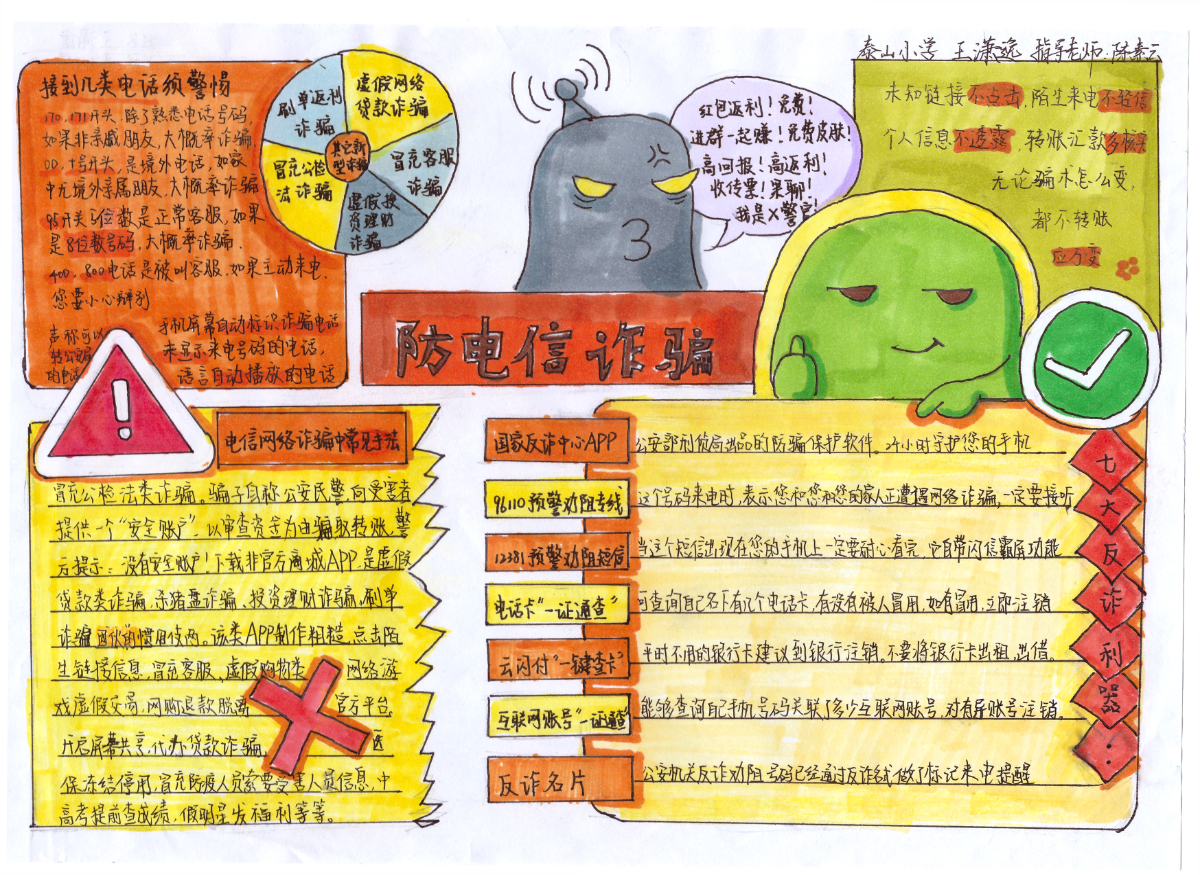 泰山小学 王潇逸 指导老师:陈素云
接到几类电话须警惕
170,171开头,除了熟悉电话号码,
如果非亲戚朋友,大概率诈骗,
00,+号开头,是境外电话,如家
中无境外亲属朋友,大概率诈骗
95开头5位数是正常客服,如果
是8位数号码,大概率诈骗.
400,800电话是被叫客服,如果主动来电,
您要小心辨别
声称可以
转公安局
的电话
手机屏幕自动标识诈骗电话
未显示来电号码的电话,
语言自动播放的电话
刷单返利
诈骗
虚假网络
贷款诈骗
冒充客服
诈骗
虚假投
资理财
诈骗
冒充公检
法诈骗
其它新
型诈骗
红包返利!免费!
进群一起赚!免费皮肤!
高回报!高返利!
收传票!果聊!
我是X警官!
未知链接不点击,陌生来电不轻信
个人信息不透露,转账汇款多核实
无论骗术怎么变,
都不转账
应万变
防电信诈骗
电信网络诈骗中常见手法
冒充公检法类诈骗。骗子自称公安民警向受害者
提供一个“安全账户”,以审查资金为由骗取转账,警
方提示:没有安全账户!下载非官方商城APP,是虚假
贷款类诈骗,杀猪盘诈骗、投资理财诈骗,刷单
诈骗团伙的惯用伎两。该类APP制作粗糙。点击陌
生链接信息,冒充客服,虚假购物类 网络游
戏虚假交易,网购退款脱离 官方平台,
开启屏幕共享,代办贷款诈骗, 医
保冻结停用,冒充防疫人员索要受害人员信息,中
高考提前查成绩,假明星发福利等等。
国家反诈中心APP 公安部刑侦局出品的防骗保护软件。24小时守护您的手机
96110预警劝阻专线 这个号码来电时,表示您和您和您的家人正遭遇网络诈骗,一定要接听
12381预警劝阻短信 当这个短信出现在您的手机上一定要耐心看完,它自带闪信霸屏功能
电话卡“一证通查” 可查询自己名下有几个电话卡,有没有被人冒用,如有冒用,立即注销
云闪付“一键查卡” 平时不用的银行卡建议到银行注销,不要将银行卡出租,出借。
互联网账号“一证通查” 能够查询自己手机号码关联了多少互联网账号,对有异账号注销。
反诈名片 公安机关反诈劝阻号码已经通过反诈线做了标记来电提醒
七大反诈利器: